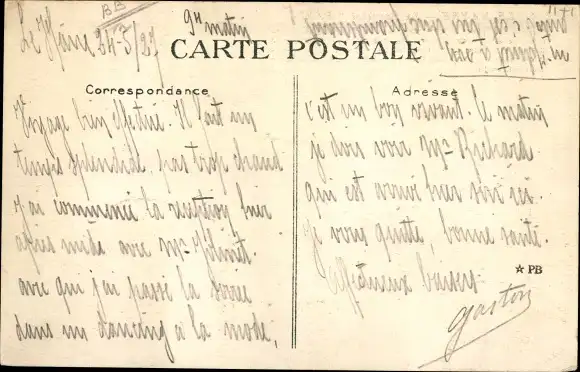 BB
1171
Le Hâvre 24-3/27 9H matin
CARTE POSTALE
Correspondance
Voyage bien effectué. Il fait un
temps splendide, pas trop chaud
J'ai commencé la réception hier
après midi avec Mr
avec qui j'ai passé la soirée
dans un dancing à la mode,
Adresse
c'est un bon vivant. Ce matin
je dois voir Mr Richard
qui est arrivé hier soir ici.
Je vous quitte, bonne santé.
Affectueux baisers
Gaston
★ PB